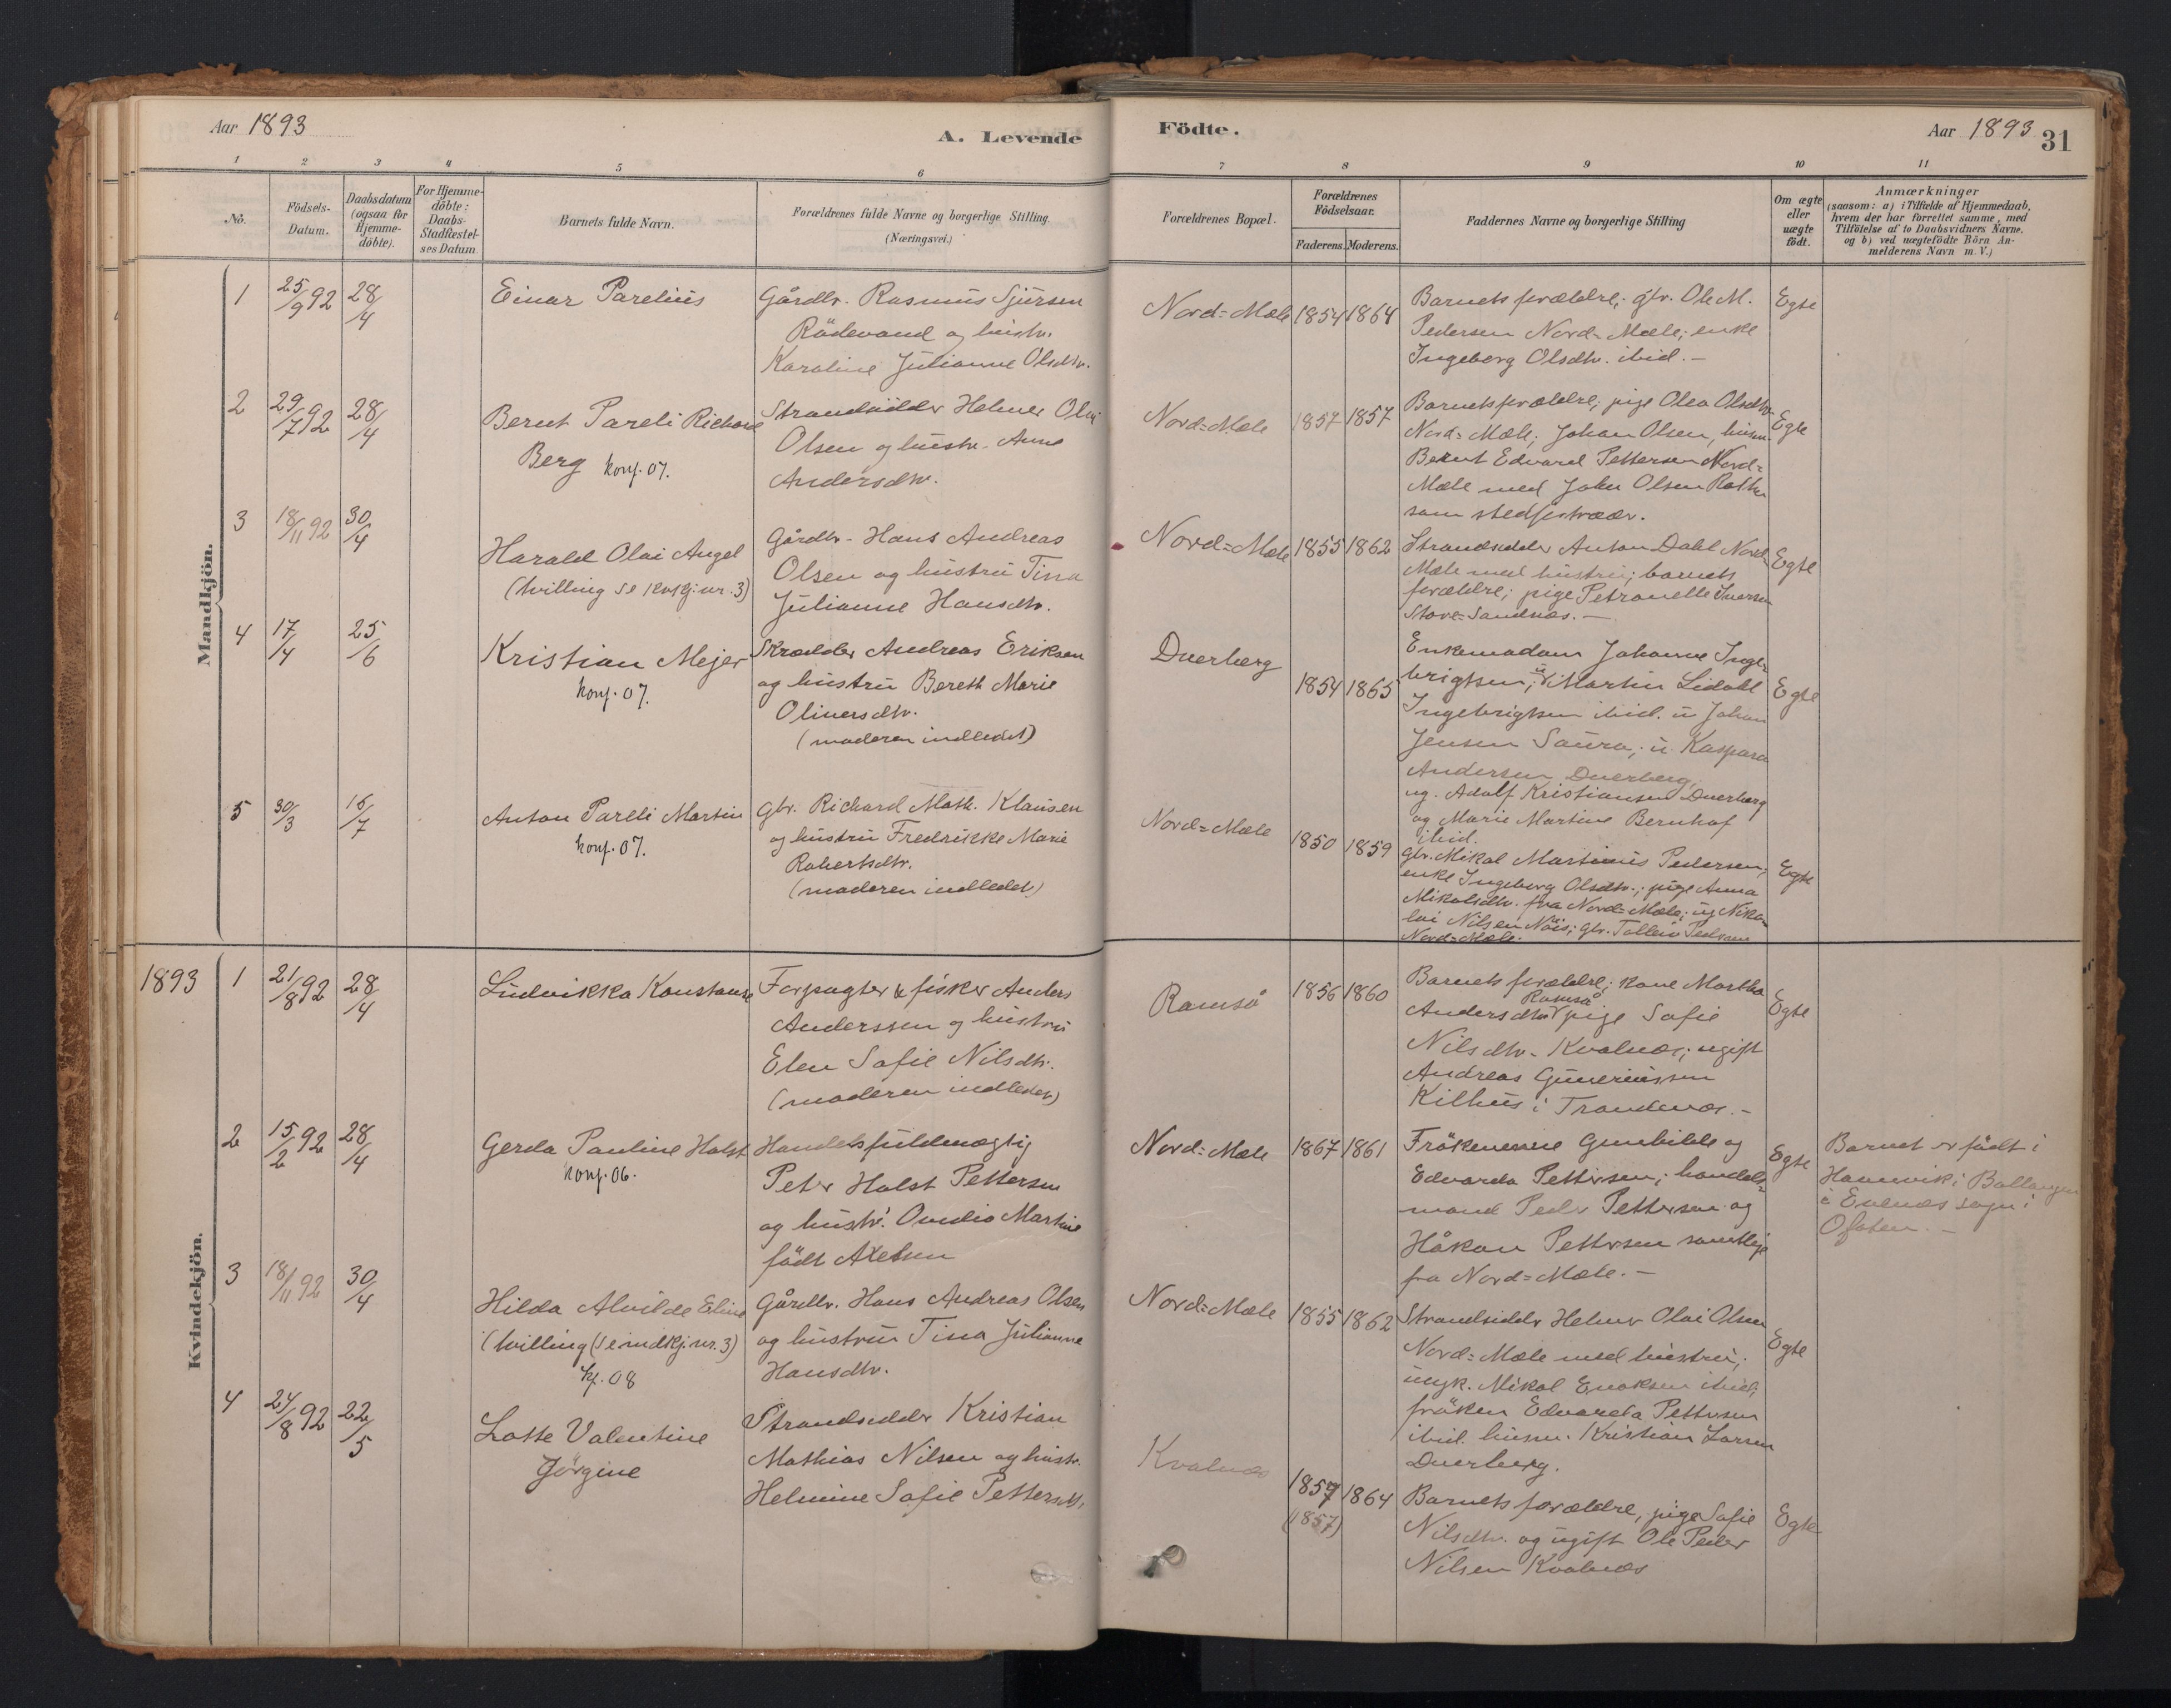 Aar 1893
A. Levende
Födte.
Aar 1893
31
1 2 3 4 5 6 7 8 9 10 11
No.
Födsels-
Datum.
Daabsdatum
(ogsaa for
Hjemme-
döbte).
For Hjemme-
döbte:
Daabs-
Stadfæstel-
ses Datum
Barnets fulde Navn.
Forældrenes fulde Navne og borgerlige Stilling.
(Næringsvei.)
Forældrenes Bopæl.
Forældrenes
Födselsaar.
Faderens. Moderens.
Faddernes Navne og borgerlige Stilling
Om ægte
eller
uægte
födt.
Anmærkninger
(saasom: a) i Tilfælde af Hjemmedaab,
hvem der har forrettet samme, med
Tilföielse af to Daabsvidners Navne.
og b) ved uægtefödte Börn An-
melderens Navn m.V.)
Mandkjön.
1 25/9 92 28/4
Einar Parelius
Gårdbr. Rasmus Sjursen
Rödevand og hustr.
Karoline Julianne Olsdtr.
Nord=Mæle 1854 1864
Barnets forældre; gbr. Ole M.
Pedersen Nord=Mæle; enke
Ingeborg Olsdtr. ibid.-
Egte
2 29/7 92 28/4
Bernt Pareli Richard
Berg konf. 07.
Strandsidder Helmer Olai
Olsen og hustr. Anne
Andersdtr.
Nord=Mæle 1857 1857
Barnets forældre; pige Olea Olsdtr.
Nord=Mæle; Johan Olsen, husm.
Bernt Edvard Pettersen Nord=
Mæle med John Olsen
som stedfortræder.
Egte
3 18/11 92 30/4
Harald Olai Angel
(tvilling se kvkj. nr. 3)
Gårdbr. Hans Andreas
Olsen og hustru Tina
Julianne Hansdtr.
Nord=Mæle 1855 1862
Strandsidder Anton Dahl Nord
Mæle med hustru; barnets
forældre; pige Petronelle Iversen
Store=Sandnæs.-
Egte
4 17/4 25/6
Kristian Mejer
konf. 07.
Skrædder Andreas Eriksen
og hustru Bereth Marie
Oliversdtr.
(moderen indledet)
Dverberg
1854 1865
Enkemadam Johanne Inge-
brigtsen; u. Martin Lidahl
Ingebrigtsen ibid. u Johan
Jensen Saura; u. Kaspara
Andersen Dverberg;
ug. Adolf Kristiansen Dverberg
og Marie Martine Bernhof
ibid.
Egte
5 30/3 16/7
Anton Pareli Martin
konf. 07.
Gbr. Richard Math. Klausen
og hustru Fredrikke Marie
Robertsdtr.
(moderen indledet)
Nord=Mæle
1850 1859
gbr. Mikal Martinus Pedersen;
enke Ingeborg Olsdtr.; pige Anna
Mikalsdtr. fra Nord=Mæle; ug Niko-
lai Nilsen Nöis; gbr. Tollev Pedersen
Nord=Mæle.
Egte
1893
Kvindekjön.
1 21/8 92 28/4
Ludvikka Konstanse
Forpagter & fisker Anders
Anderssen og hustru
Elen Sofie Nilsdtr.
(moderen indledet)
Ramså
1856 1860
Barnets forældre; kone Martha
Ramså
Andersdtr pige Sofie
Nilsdtr. Kvalnæs; ugift
Andreas Guneriussen
Kilhus i Trondenæs.-
Egte
2 15/2 92 28/4
Gerda Pauline Holst
konf. 06.
Handelsfuldmægtig
Peter Holst Pettersen
og hustr. Ovidia Martine
födt Axelsen
Nord=Mæle 1867 1861
Frökenerne Gunhilde og
Edvarda Pettersen; handels=
mand Peder Pettersen og
Håkon Pettersen samtlige
fra Nord=Mæle.-
Egte
Barnet er födt i
Hamnvik i Ballangen
i Evenæs sogn i
Ofoten.-
3 18/11 92 30/4
Hilda Alvilde Eline
(tvilling (se mdkj. nr. 3)
kf. 08
Gårdbr. Hans Andreas Olsen
og hustru Tina Julianne
Hansdtr.
Nord=Mæle 1855 1862
Strandsidder Helmer Olai Olsen
Nord=Mæle med hustru;
ungk. Mikal Enoksen ibid;
fröken Edvarda Pettersen
ibid. husm. Kristian Larsen
Dverberg.
Egte
4 24/8 92 22/5
Lotte Valentine
Jörgine
Strandsidder Kristian
Mathias Nilsen og hustr.
Helmine Sofie Pettersdtr.
Kvalnæs
1857 1864
(1857)
Barnets forældre, pige Sofie
Nilsdtr. og ugift Ole Peder
Nilsen Kvalnæs
Egte